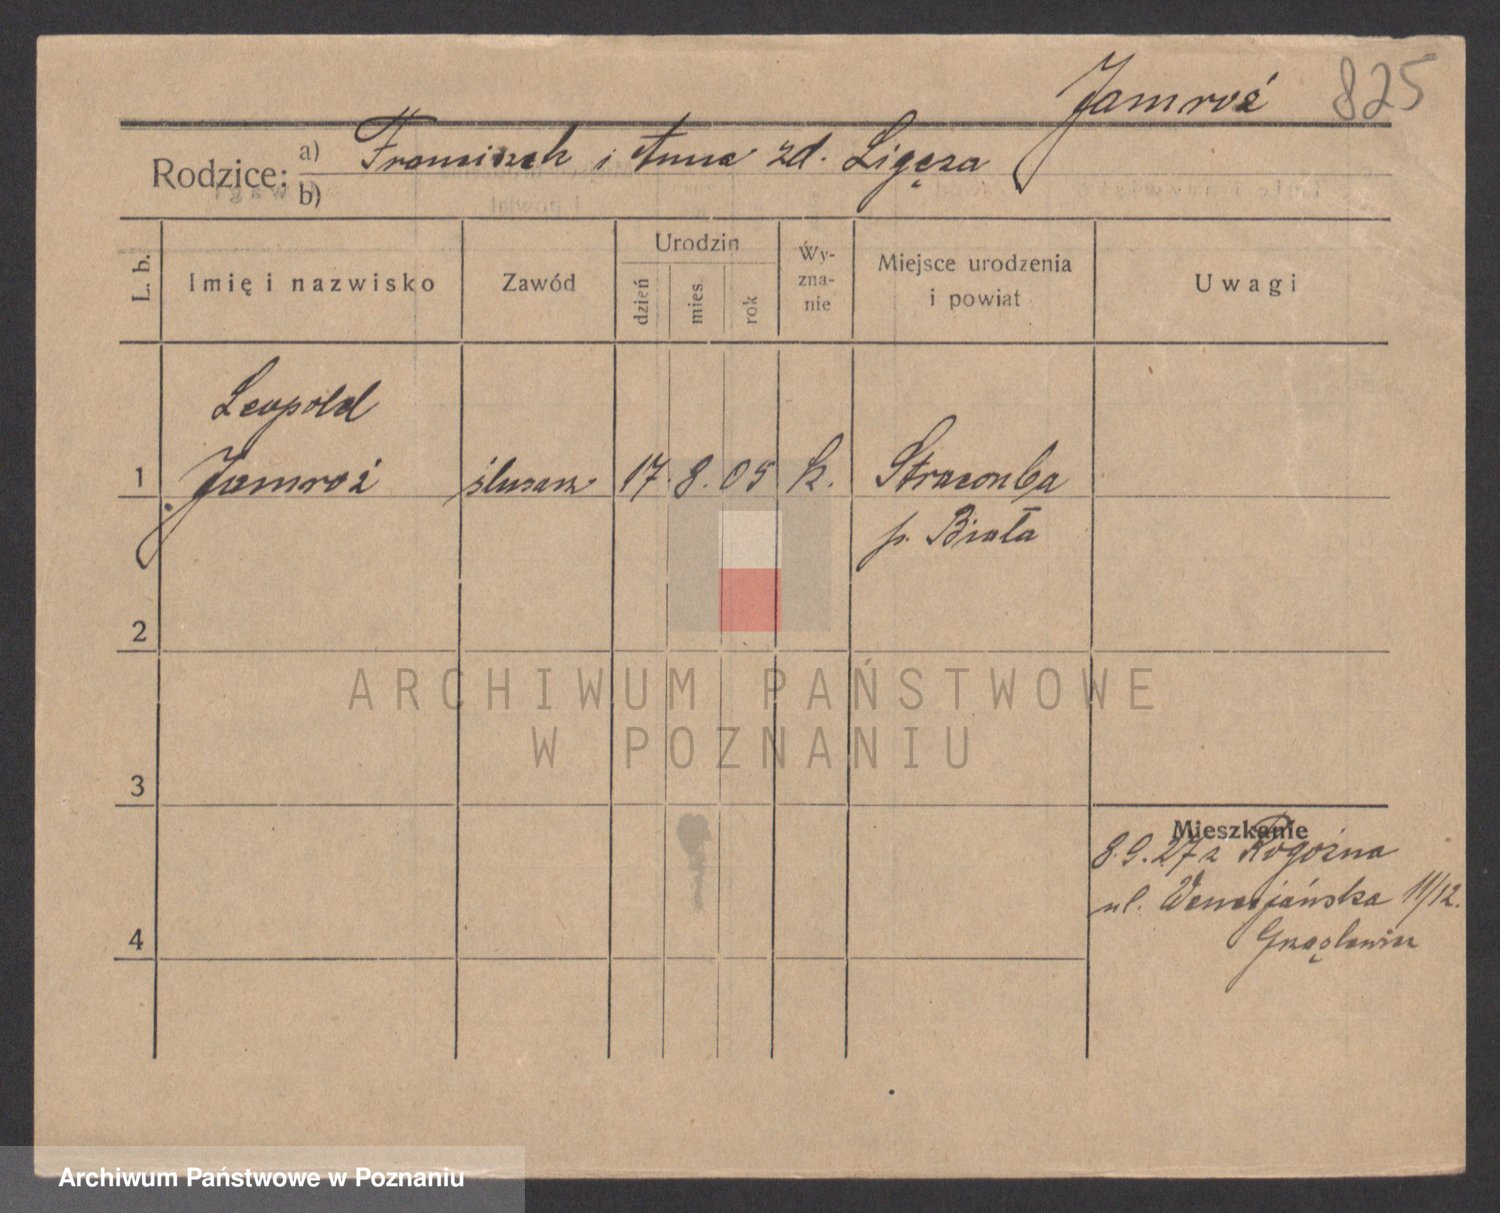 Jamroż 825
Rodzice: a) Franciszek i Anna zd. Ligęza
b)
L. b.
Imię i nazwisko
Zawód
Urodzin
dzień
mies.
rok
Wy-
zna-
nie
Miejsce urodzenia
i powiat
Uwagi
Leopold
1 Jamroż ślusarz 17. 8. 05 k. Straconka
p. Biała
2
ARCHIWUM PAŃSTWOWE
W POZNANIU
3
Mieszkanie
8.9.27 z Rogoźna
ul. Wenecjańska 11/12.
4
Archiwum Państwowe w Poznaniu